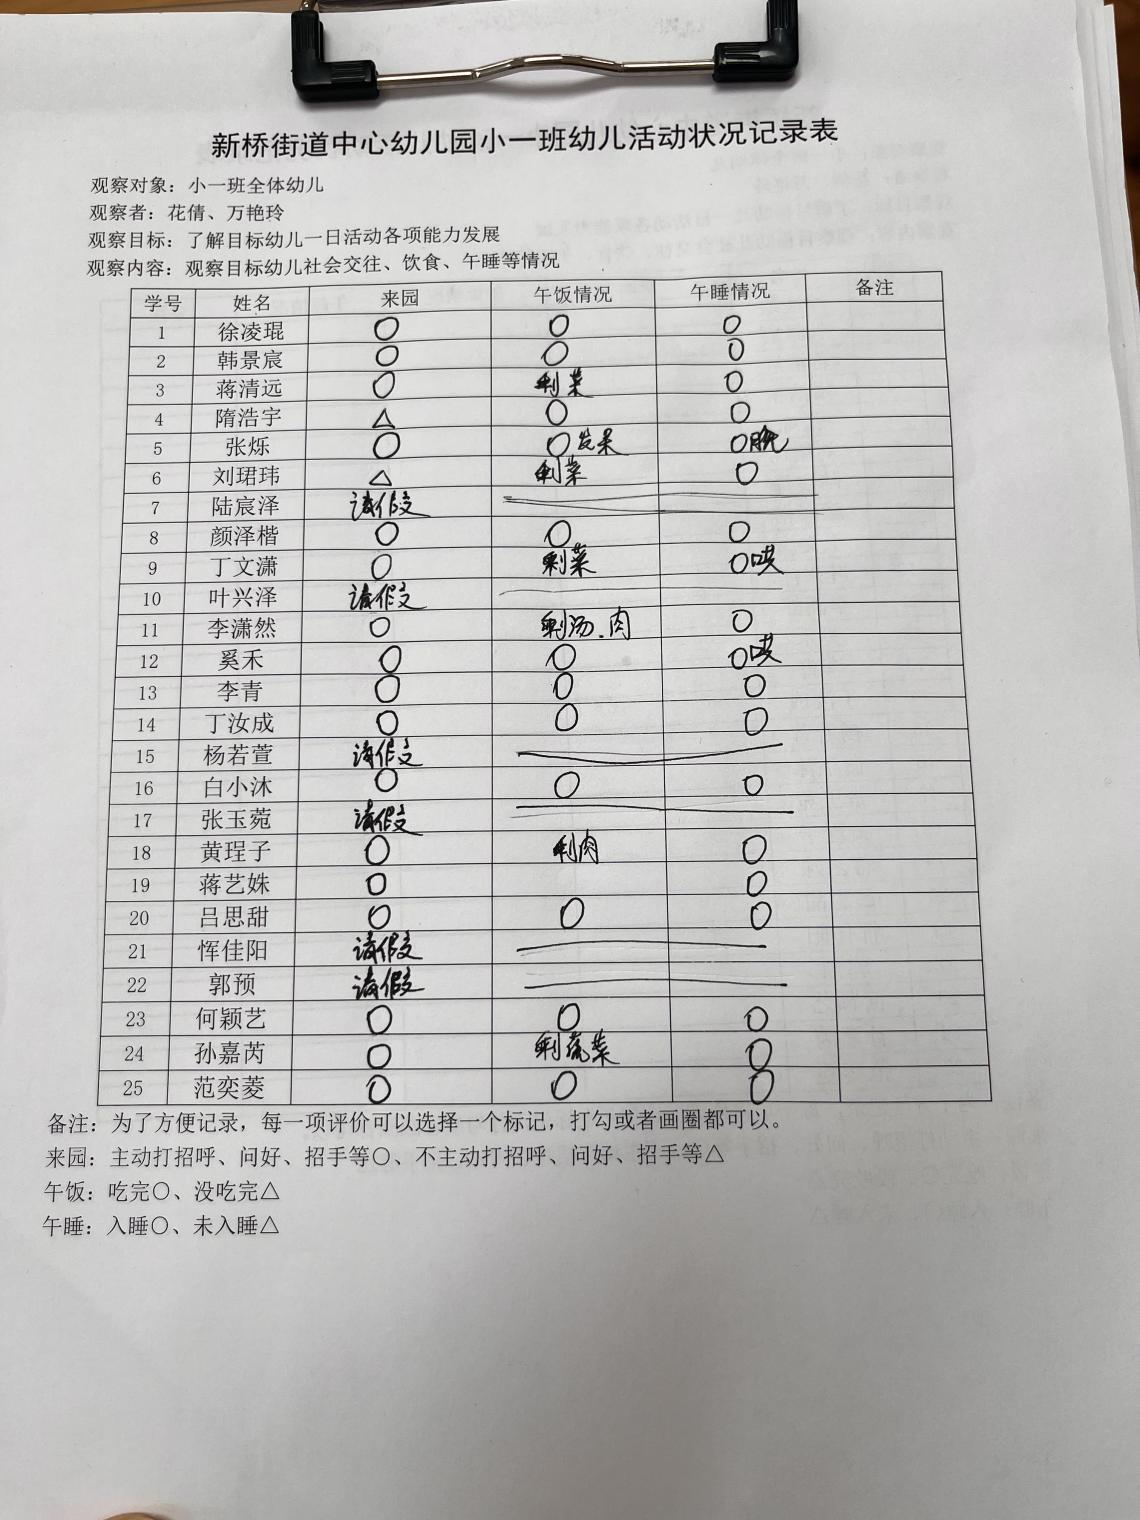 新桥街道中心幼儿园小一班幼儿活动状况记录表
观察对象：小一班全体幼儿
观察者：花倩、万艳玲
观察目标：了解目标幼儿一日活动各项能力发展
观察内容：观察目标幼儿社会交往、饮食、午睡等情况
学号 姓名 来园 午饭情况 午睡情况 备注
1 徐凌琨 ○ ○ ○
2 韩景宸 ○ ○ ○
3 蒋清远 ○ 剩菜 ○
4 隋浩宇 △ ○ ○
5 张烁 ○ ○发呆 ○晚
6 刘珺玮 △ 剩菜 ○
7 陆宸泽 请假
8 颜泽楷 ○ ○ ○
9 丁文潇 ○ 剩菜 ○哄
10 叶兴泽 请假
11 李潇然 ○ 剩汤、肉 ○
12 奚禾 ○ ○ ○哄
13 李青 ○ ○ ○
14 丁汝成 ○ ○ ○
15 杨若萱 请假
16 白小沐 ○ ○ ○
17 张玉菀 请假
18 黄珵子 ○ 剩肉 ○
19 蒋艺姝 ○ ○
20 吕思甜 ○ ○ ○
21 恽佳阳 请假
22 郭预 请假
23 何颖艺 ○ ○ ○
24 孙嘉芮 ○ 剩蔬菜 ○
25 范奕菱 ○ ○ ○
备注：为了方便记录，每一项评价可以选择一个标记，打勾或者画圈都可以。
来园：主动打招呼、问好、招手等○、不主动打招呼、问好、招手等△
午饭：吃完○、没吃完△
午睡：入睡○、未入睡△